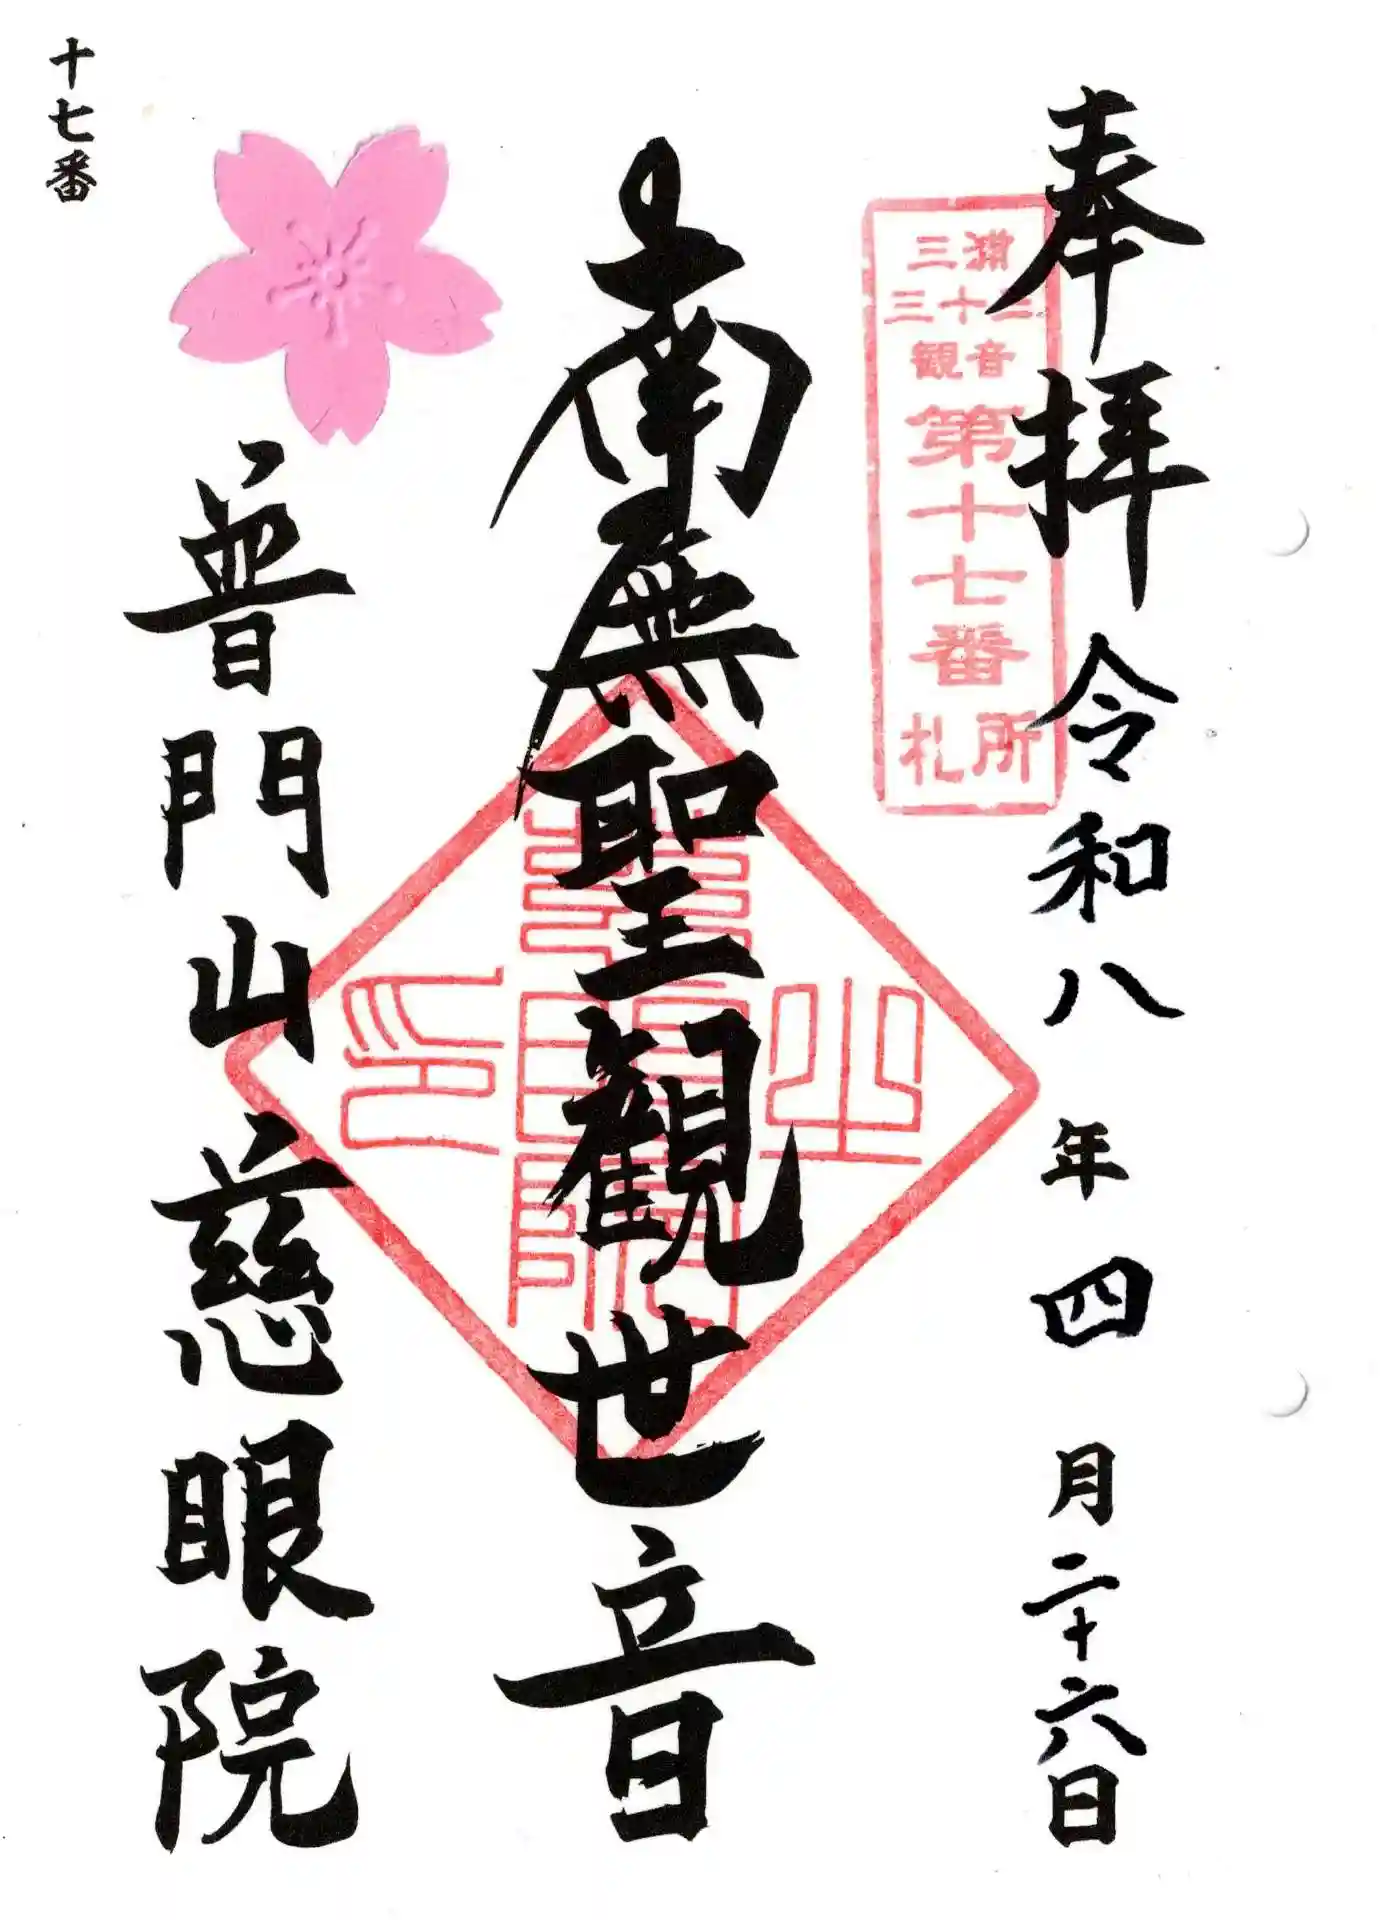 奉拝
令和八年四月二十六日
三浦
三十三
観音
第十七番
札所
南無聖観世音
慈眼院之印
普門山慈眼院
十七番